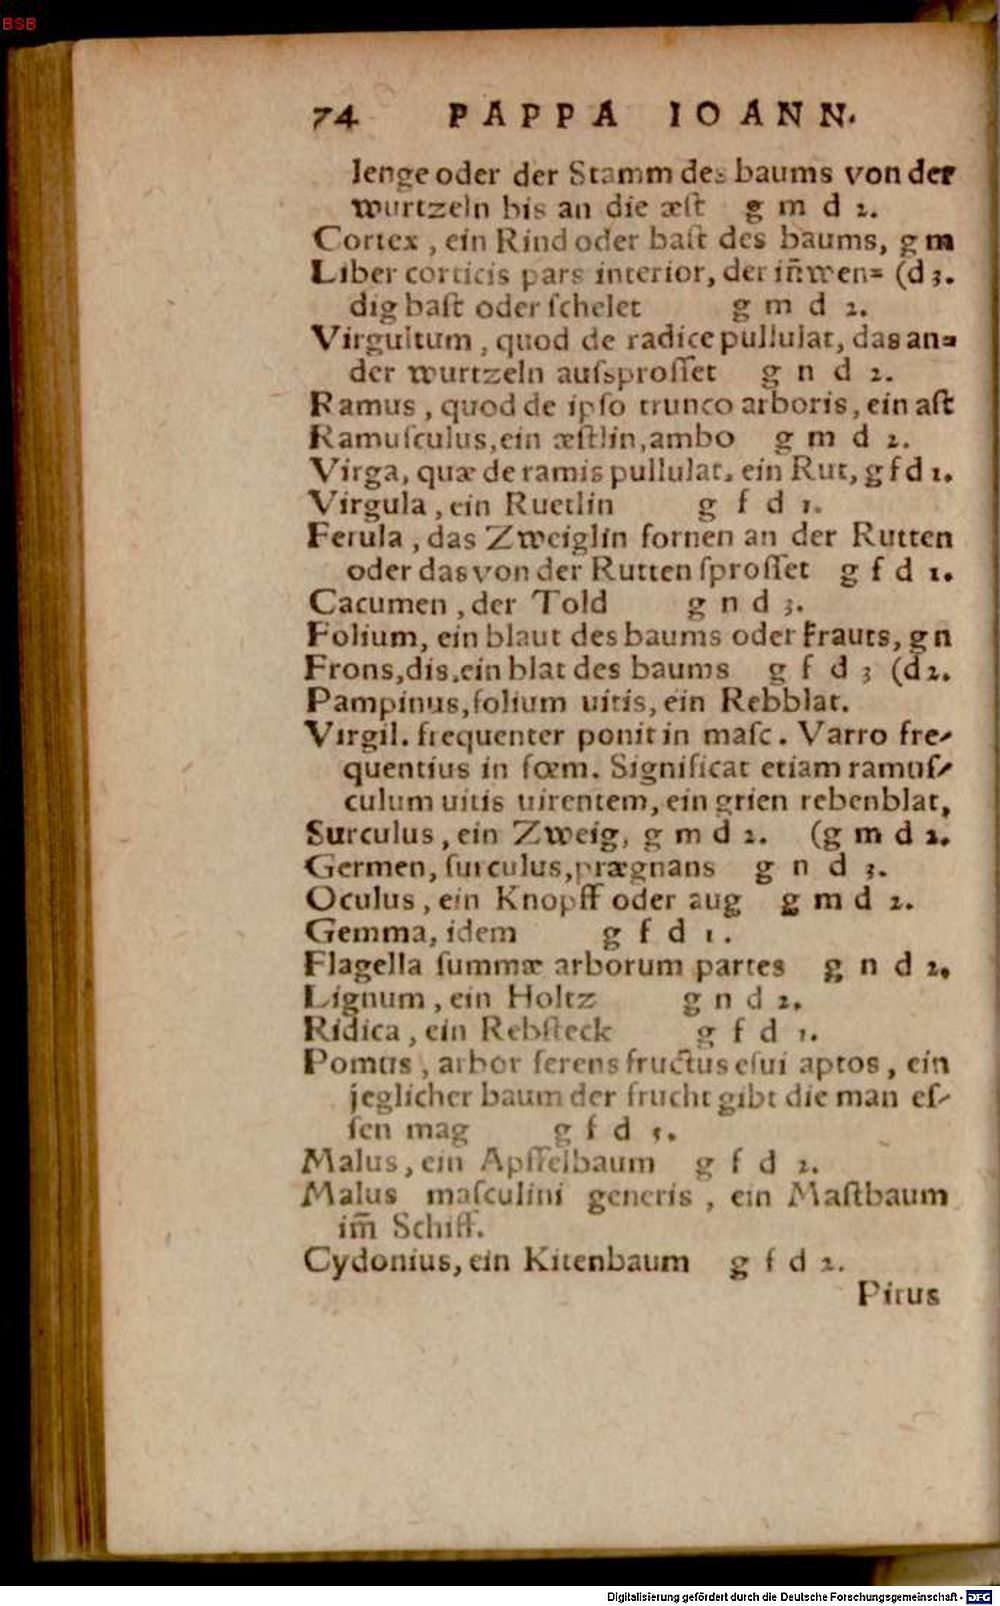 BSB
74 PAPPA IOANN.
lenge oder der Stamm des baums von der
wurtzeln bis an die æſt g m d 2.
Cortex, ein Rind oder baſt des baums, g m
Liber corticis pars interior, der in̄wen= (d 3.
dig baſt oder ſchelet g m d 2.
Virgultum, quod de radice pullulat, das an=
der wurtzeln auſsproſſet g n d 2.
Ramus, quod de ipſo trunco arboris, ein aſt
Ramuſculus, ein æſtlin, ambo g m d 2.
Virga, quæ de ramis pullulat, ein Rut, g f d 1.
Virgula, ein Ruetlin g f d 1.
Ferula, das Zweiglin fornen an der Rutten
oder das von der Rutten ſproſſet g f d 1.
Cacumen, der Told g n d 3.
Folium, ein blaut des baums oder krauts, g n
Frons, dis, ein blat des baums g f d 3 (d 2.
Pampinus, folium uitis, ein Rebblat.
Virgil. frequenter ponit in maſc. Varro fre-
quentius in fœm. Significat etiam ramuſ-
culum uitis uirentem, ein grien rebenblat,
Surculus, ein Zweig, g m d 2. (g m d 2.
Germen, ſurculus, prægnans g n d 3.
Oculus, ein Knopff oder aug g m d 2.
Gemma, idem g f d 1.
Flagella ſummæ arborum partes g n d 2.
Lignum, ein Holtz g n d 2.
Ridica, ein Rebſteck g f d 1.
Pomus, arbor ferens fructus eſui aptos, ein
jeglicher baum der frucht gibt die man eſ-
ſen mag g f d
Malus, ein Apffelbaum g f d 2.
Malus maſculini generis, ein Maſtbaum
im̄ Schiff.
Cydonius, ein Kitenbaum g f d 2.
Pirus
Digitalisierung gefördert durch die Deutsche Forschungsgemeinschaft - DFG